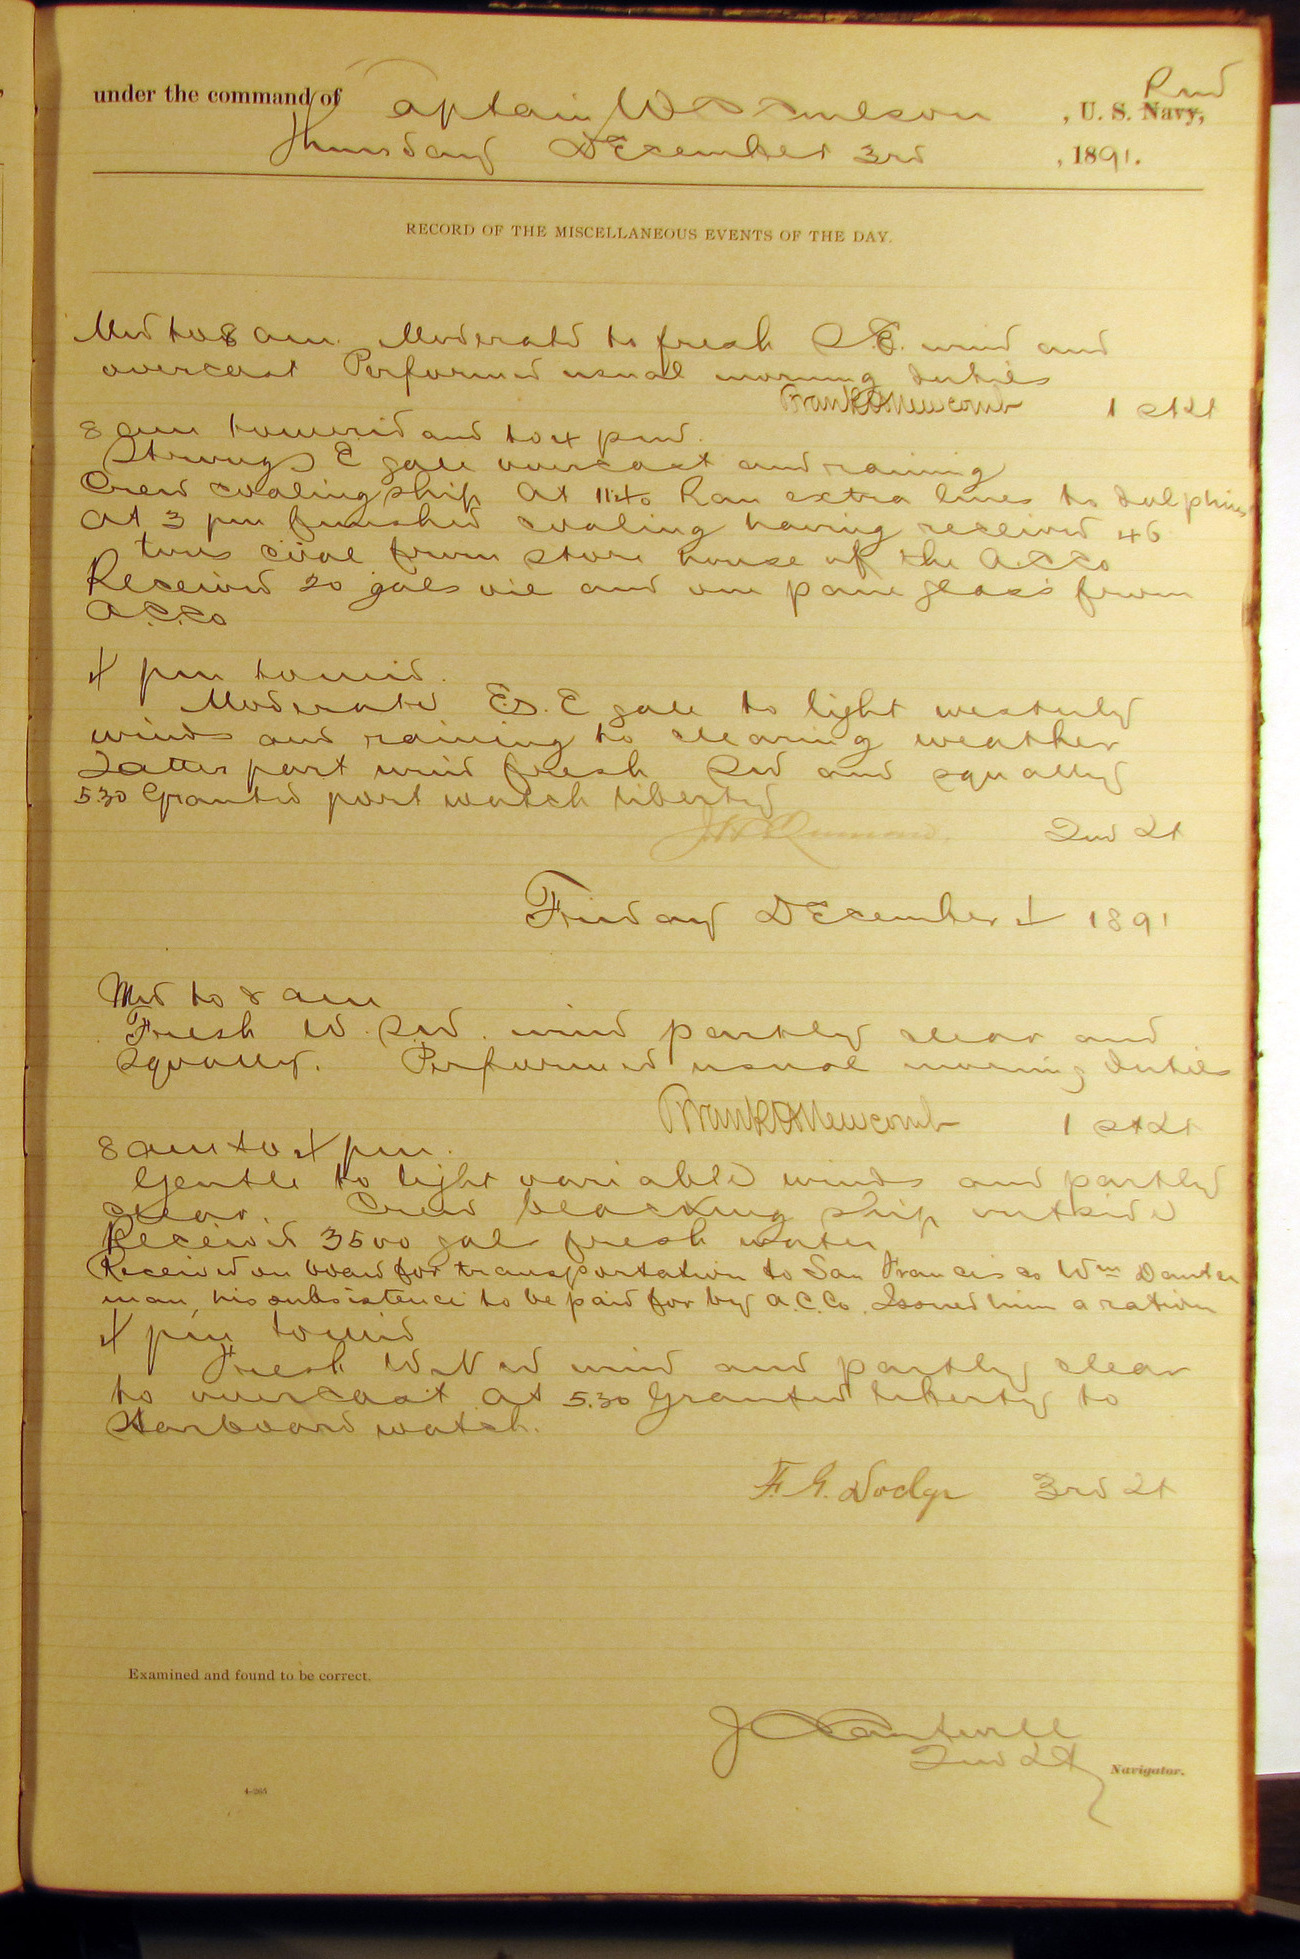 under the command of Captain , U. S. Navy,
Thursday December 3rd , 1891.
RECORD OF THE MISCELLANEOUS EVENTS OF THE DAY.
Mid to 8 am. Moderate to fresh S.E. wind and
overcast Performed usual morning duties
Frank H Newcomb 1 st Lt
8 am to merid and to 4 pm.
Strong S E gale overcast and raining
Crew coaling ship At 11.40 Ran extra lines to dolphins
At 3 pm finished coaling having received 46
tons coal from store house of the A.C.Co
Received 20 gals oil and one pane glass from
A.C.Co
4 pm to mid.
Moderate E.S.E gale to light westerly
winds and raining to clearing weather
Latter part wind fresh SW and squally
5 30 Granted port watch liberty
2nd Lt
Friday December 4 1891
Mid to 8 am
Fresh W. SW. wind partly clear and
squally. Performed usual morning duties
Frank H Newcomb 1 st Lt
8 am to 4 pm.
Gentle to light variable winds and partly
clear. Crew blacking ship outside
Received 3500 gals fresh water
Received on board for transportation to San Francisco Wm
man, his subsistence to be paid for by A.C.Co. Issued him a ration
4 pm to mid
Fresh W N W wind and partly clear
to overcast At 5.30 Granted liberty to
Starboard watch.
F. G. Dodge 3rd Lt
Examined and found to be correct.
J C Cantwell
2nd Lt Navigator.
4-265